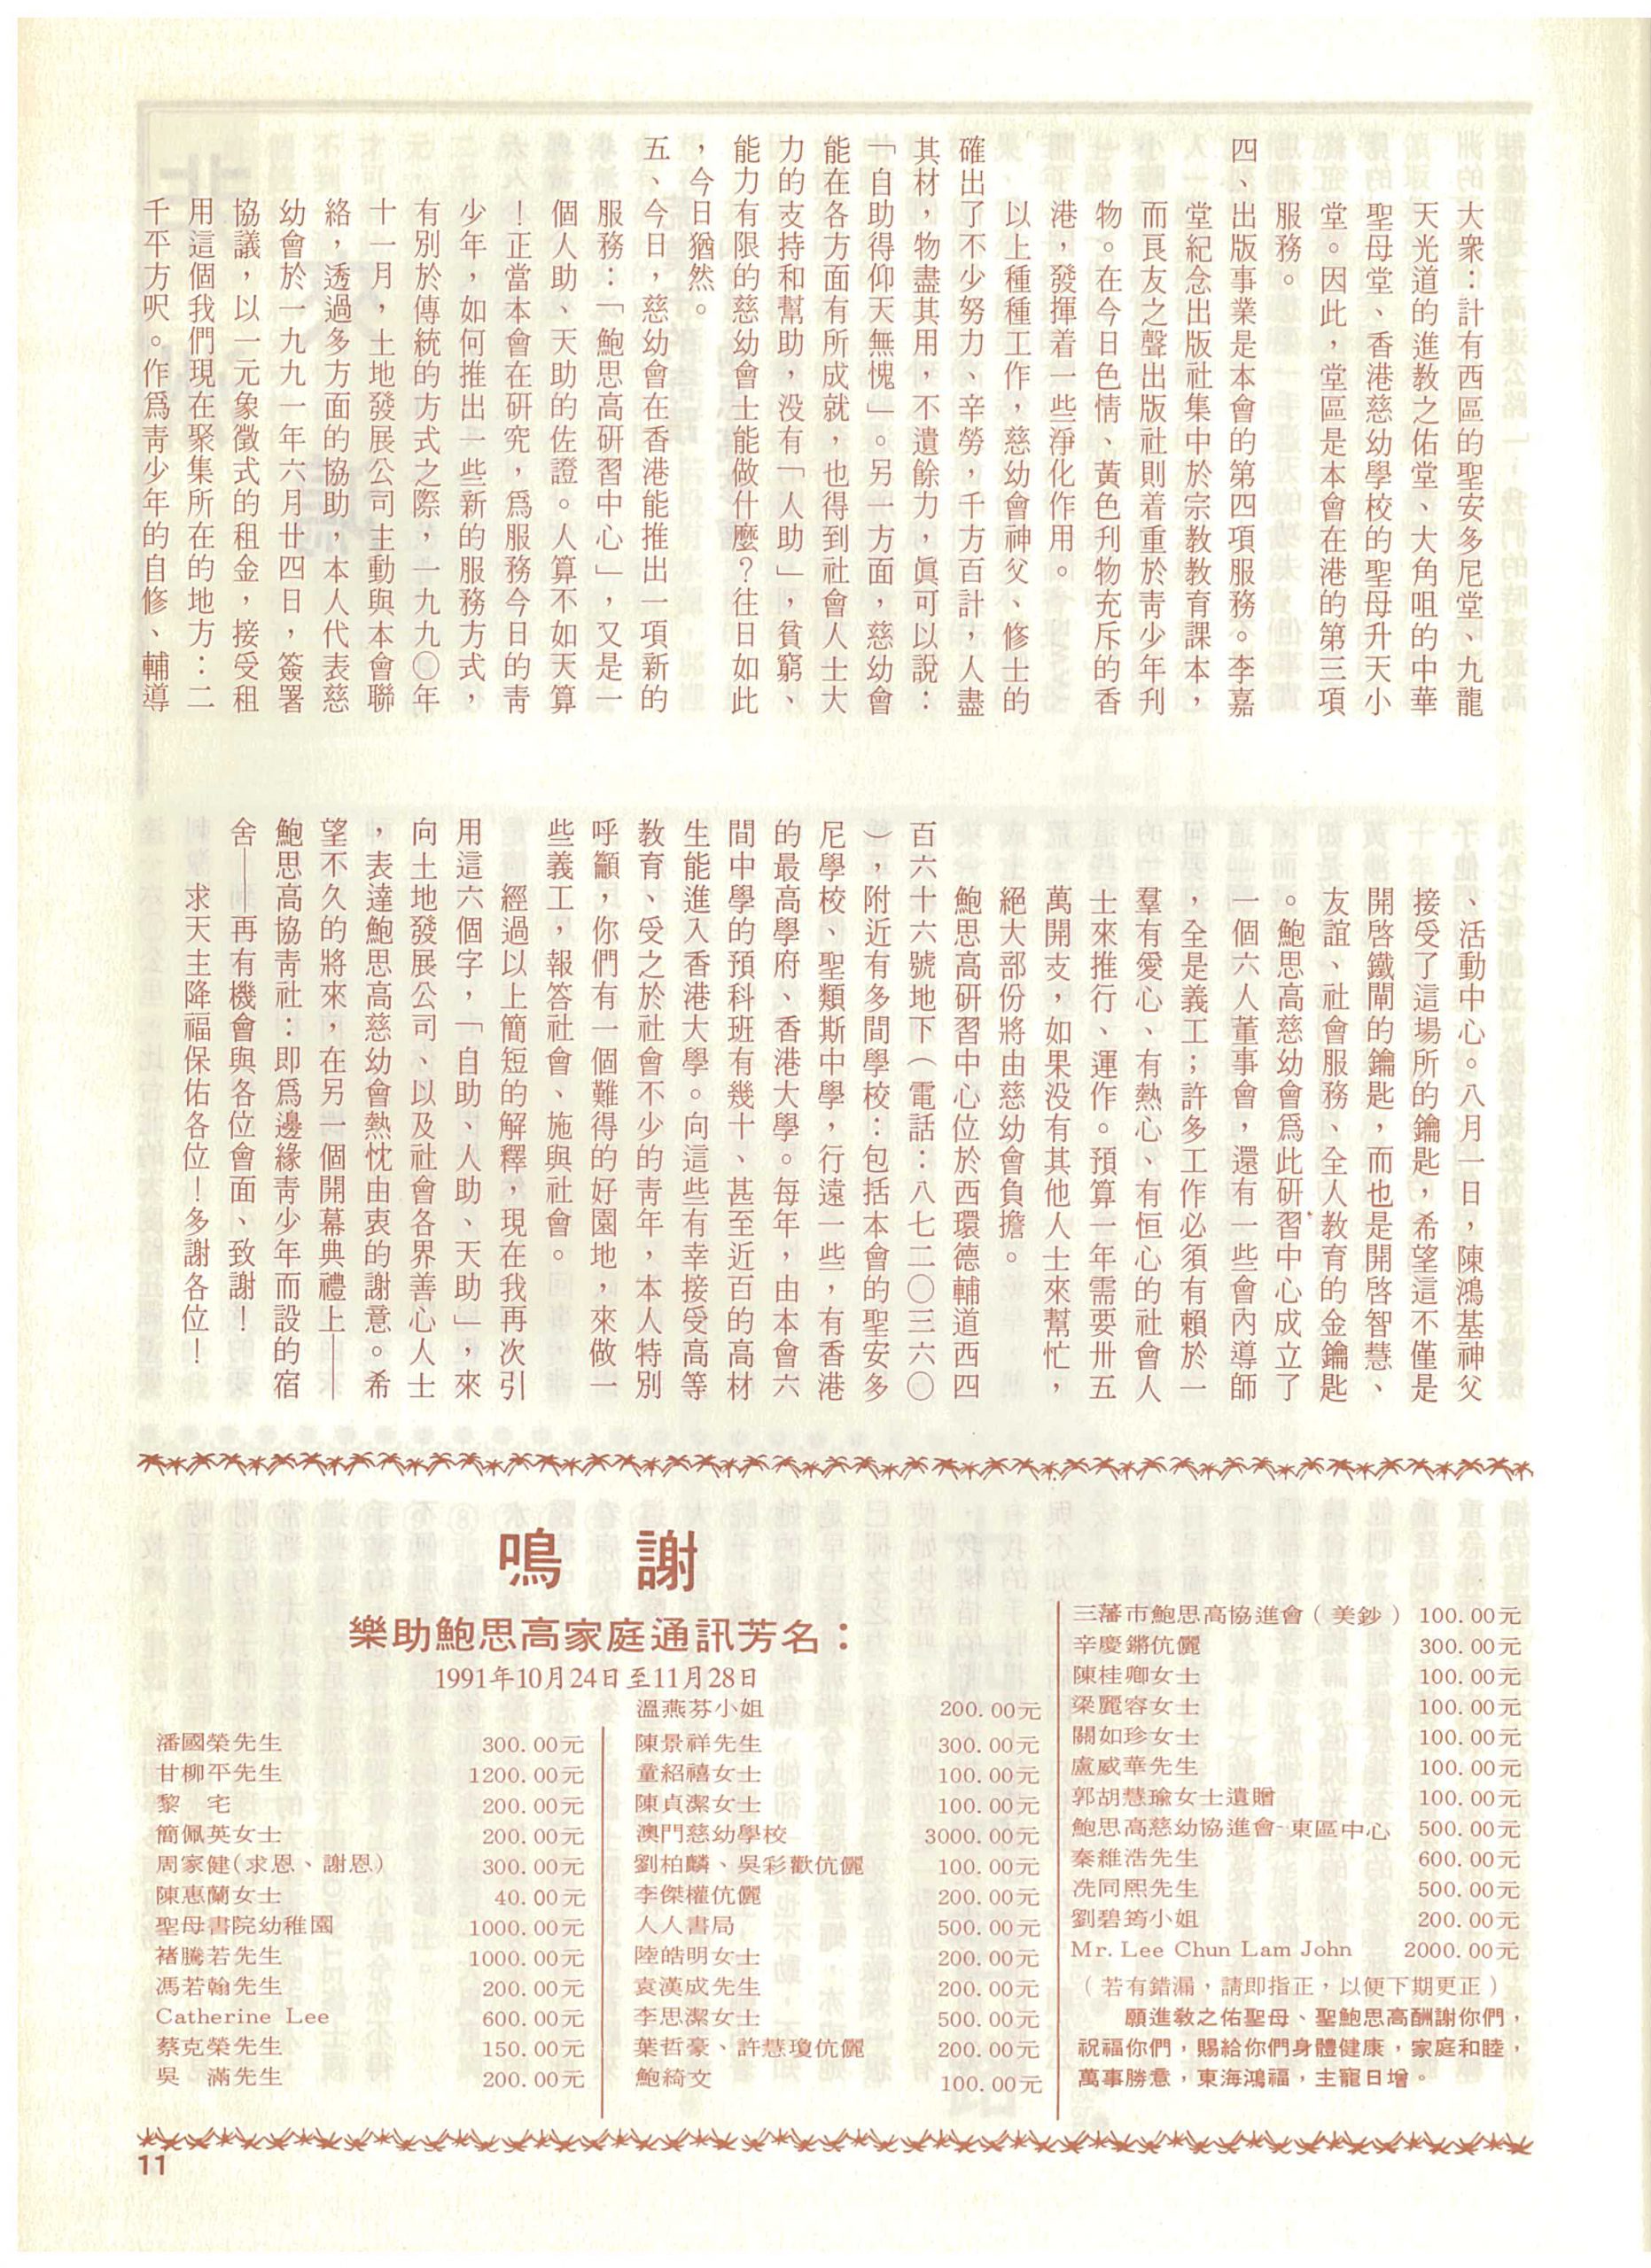 大衆：計有西區的聖安多尼堂、九龍
天光道的進教之佑堂、大角咀的中華
聖母堂、香港慈幼學校的聖母升天小
堂。因此，堂區是本會在港的第三項
服務。
四、出版事業是本會的第四項服務。李嘉
堂紀念出版社集中於宗教教育課本，
而良友之聲出版社則着重於靑少年刋
物。在今日色情、黃色刋物充斥的香
港，發揮着一些淨化作用。
以上種種工作，慈幼會神父、修士的
確出了不少努力、辛勞，千方百計，人盡
其材，物盡其用，不遺餘力，眞可以說：
「自助得仰天無愧」。另一方面，慈幼會
能在各方面有所成就，也得到社會人士大
力的支持和幫助，没有「人助」，貧窮、
能力有限的慈幼會士能做什麼？往日如此
，今日猶然。
五、今日，慈幼會在香港能推出一項新的
服務：「鮑思高硏習中心」，又是一
個人助、天助的佐證。人算不如天算
！正當本會在硏究，爲服務今日的靑
少年，如何推出一些新的服務方式，
有別於傳統的方式之際，一九九〇年
十一月，土地發展公司主動與本會聯
絡，透過多方面的協助，本人代表慈
幼會於一九九一年六月廿四日，簽署
協議，以一元象徵式的租金，接受租
用這個我們現在聚集所在的地方：二
千平方呎。作爲靑少年的自修、輔導
、活動中心。八月一日，陳鴻基神父
接受了這場所的鑰匙，希望這不僅是
開啓鐵閘的鑰匙，而也是開啓智慧、
友誼、社會服務、全人教育的金鑰匙
。鮑思高慈幼會爲此硏習中心成立了
一個六人董事會，還有一些會內導師
，全是義工；許多工作必須有賴於一
羣有愛心、有熱心、有恒心的社會人
士來推行、運作。預算一年需要卅五
萬開支，如果没有其他人士來幫忙，
絕大部份將由慈幼會負擔。
鮑思高硏習中心位於西環德輔道西四
百六十六號地下（電話：八七二〇三六〇
），附近有多間學校：包括本會的聖安多
尼學校、聖類斯中學，行遠一些，有香港
的最高學府、香港大學。每年，由本會六
間中學的預科班有幾十、甚至近百的高材
生能進入香港大學。向這些有幸接受高等
教育、受之於社會不少的靑年，本人特別
呼籲，你們有一個難得的好園地，來做一
些義工，報答社會、施與社會。
經過以上簡短的解釋，現在我再次引
用這六個字，「自助、人助、天助」，來
向土地發展公司、以及社會各界善心人士
，表達鮑思高慈幼會熱忱由衷的謝意。希
望不久的將來，在另一個開幕典禮上——
鮑思高協靑社：即爲邊緣靑少年而設的宿
舍——再有機會與各位會面、致謝！
求天主降福保佑各位！多謝各位！
鳴　謝
樂助鮑思高家庭通訊芳名：
1991年10月24日至11月28日
潘國榮先生 300.00元
甘柳平先生 1200.00元
黎　宅 200.00元
簡佩英女士 200.00元
周家健(求恩、謝恩) 300.00元
陳惠蘭女士 40.00元
聖母書院幼稚園 1000.00元
褚騰若先生 1000.00元
馮若翰先生 200.00元
Catherine Lee 600.00元
蔡克榮先生 150.00元
吳　滿先生 200.00元
溫燕芬小姐 200.00元
陳景祥先生 300.00元
童紹禧女士 100.00元
陳貞潔女士 100.00元
澳門慈幼學校 3000.00元
劉柏麟、吳彩歡伉儷 100.00元
李傑權伉儷 200.00元
人人書局 500.00元
陸皓明女士 200.00元
袁漢成先生 200.00元
李思潔女士 500.00元
葉哲豪、許慧瓊伉儷 200.00元
鮑綺文 100.00元
三藩市鮑思高協進會（美鈔） 100.00元
辛慶鏘伉儷 300.00元
陳桂卿女士 100.00元
梁麗容女士 100.00元
關如珍女士 100.00元
盧威華先生 100.00元
郭胡慧瑜女士遺贈 100.00元
鮑思高慈幼協進會-東區中心 500.00元
秦維浩先生 600.00元
冼同熙先生 500.00元
劉碧筠小姐 200.00元
Mr. Lee Chun Lam John 2000.00元
（若有錯漏，請即指正，以便下期更正）
願進教之佑聖母、聖鮑思高酬謝你們，
祝福你們，賜給你們身體健康，家庭和睦，
萬事勝意，東海鴻福，主寵日增。
11